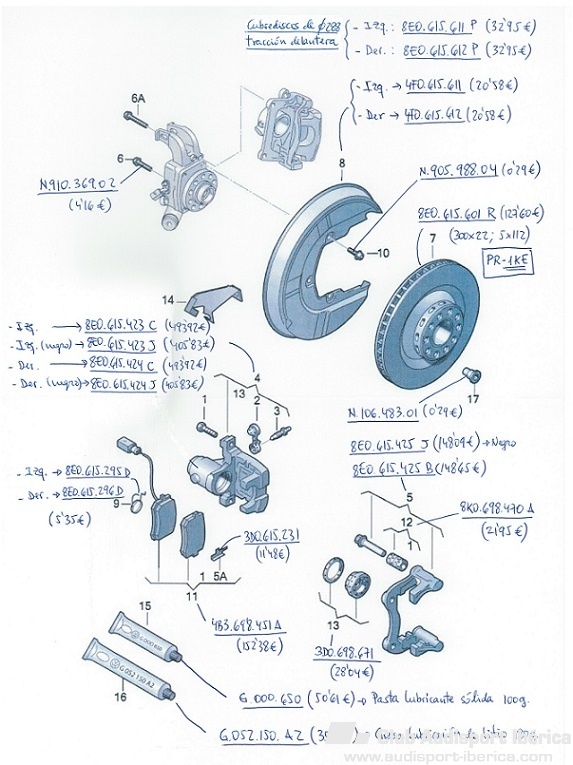 Cubrediscos de φ288 - Izq.: 8E0.615.611 P (32'95€)
tracción delantera - Der.: 8E0.615.612 P (32'95€)
- Izq → 4F0.615.611 (20'58€)
- Der → 4F0.615.612 (20'58€)
6A
6
8
N.910.369.02
(4'16€)
N.905.988.04 (0'29€)
8E0.615.601 R (127'60€)
7 (300x22; 5x112)
PR-1KE
10
14
- Izq. → 8E0.615.423 C (493'92€)
- Izq. (negro) → 8E0.615.423 J (405'83€)
- Der. → 8E0.615.424 C (493'92€)
- Der. (negro) → 8E0.615.424 J (405'83€)
4
13
1 2 3
17
N.106.483.01 (0'29€)
8E0.615.425 J (148'09€) → Negro
8E0.615.425 B (148'65€)
- Izq. → 8E0.615.295 D
- Der. → 8E0.615.296 D
9
(5'35€)
5
12
1
8K0.698.470 A
(21'95€)
3D0.615.231
(11'48€)
1 5A
11
13
4B3.698.451 A
(152'38€)
3D0.698.671
(28'04€)
15
G.000 650
G.052 150 A2
16
G.000.650 (50'61€) → Pasta lubricante sólida 100g.
G.052.150.A2
Club Audisport Ibérica
www.audisport-iberica.com